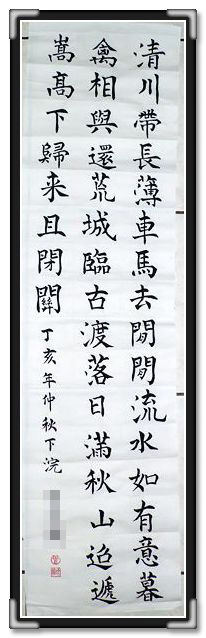 清川帶長薄車馬去閒閒流水如有意暮
禽相與還荒城臨古渡落日滿秋山迢遞
嵩高下歸来且閉關
丁亥年仲秋下浣